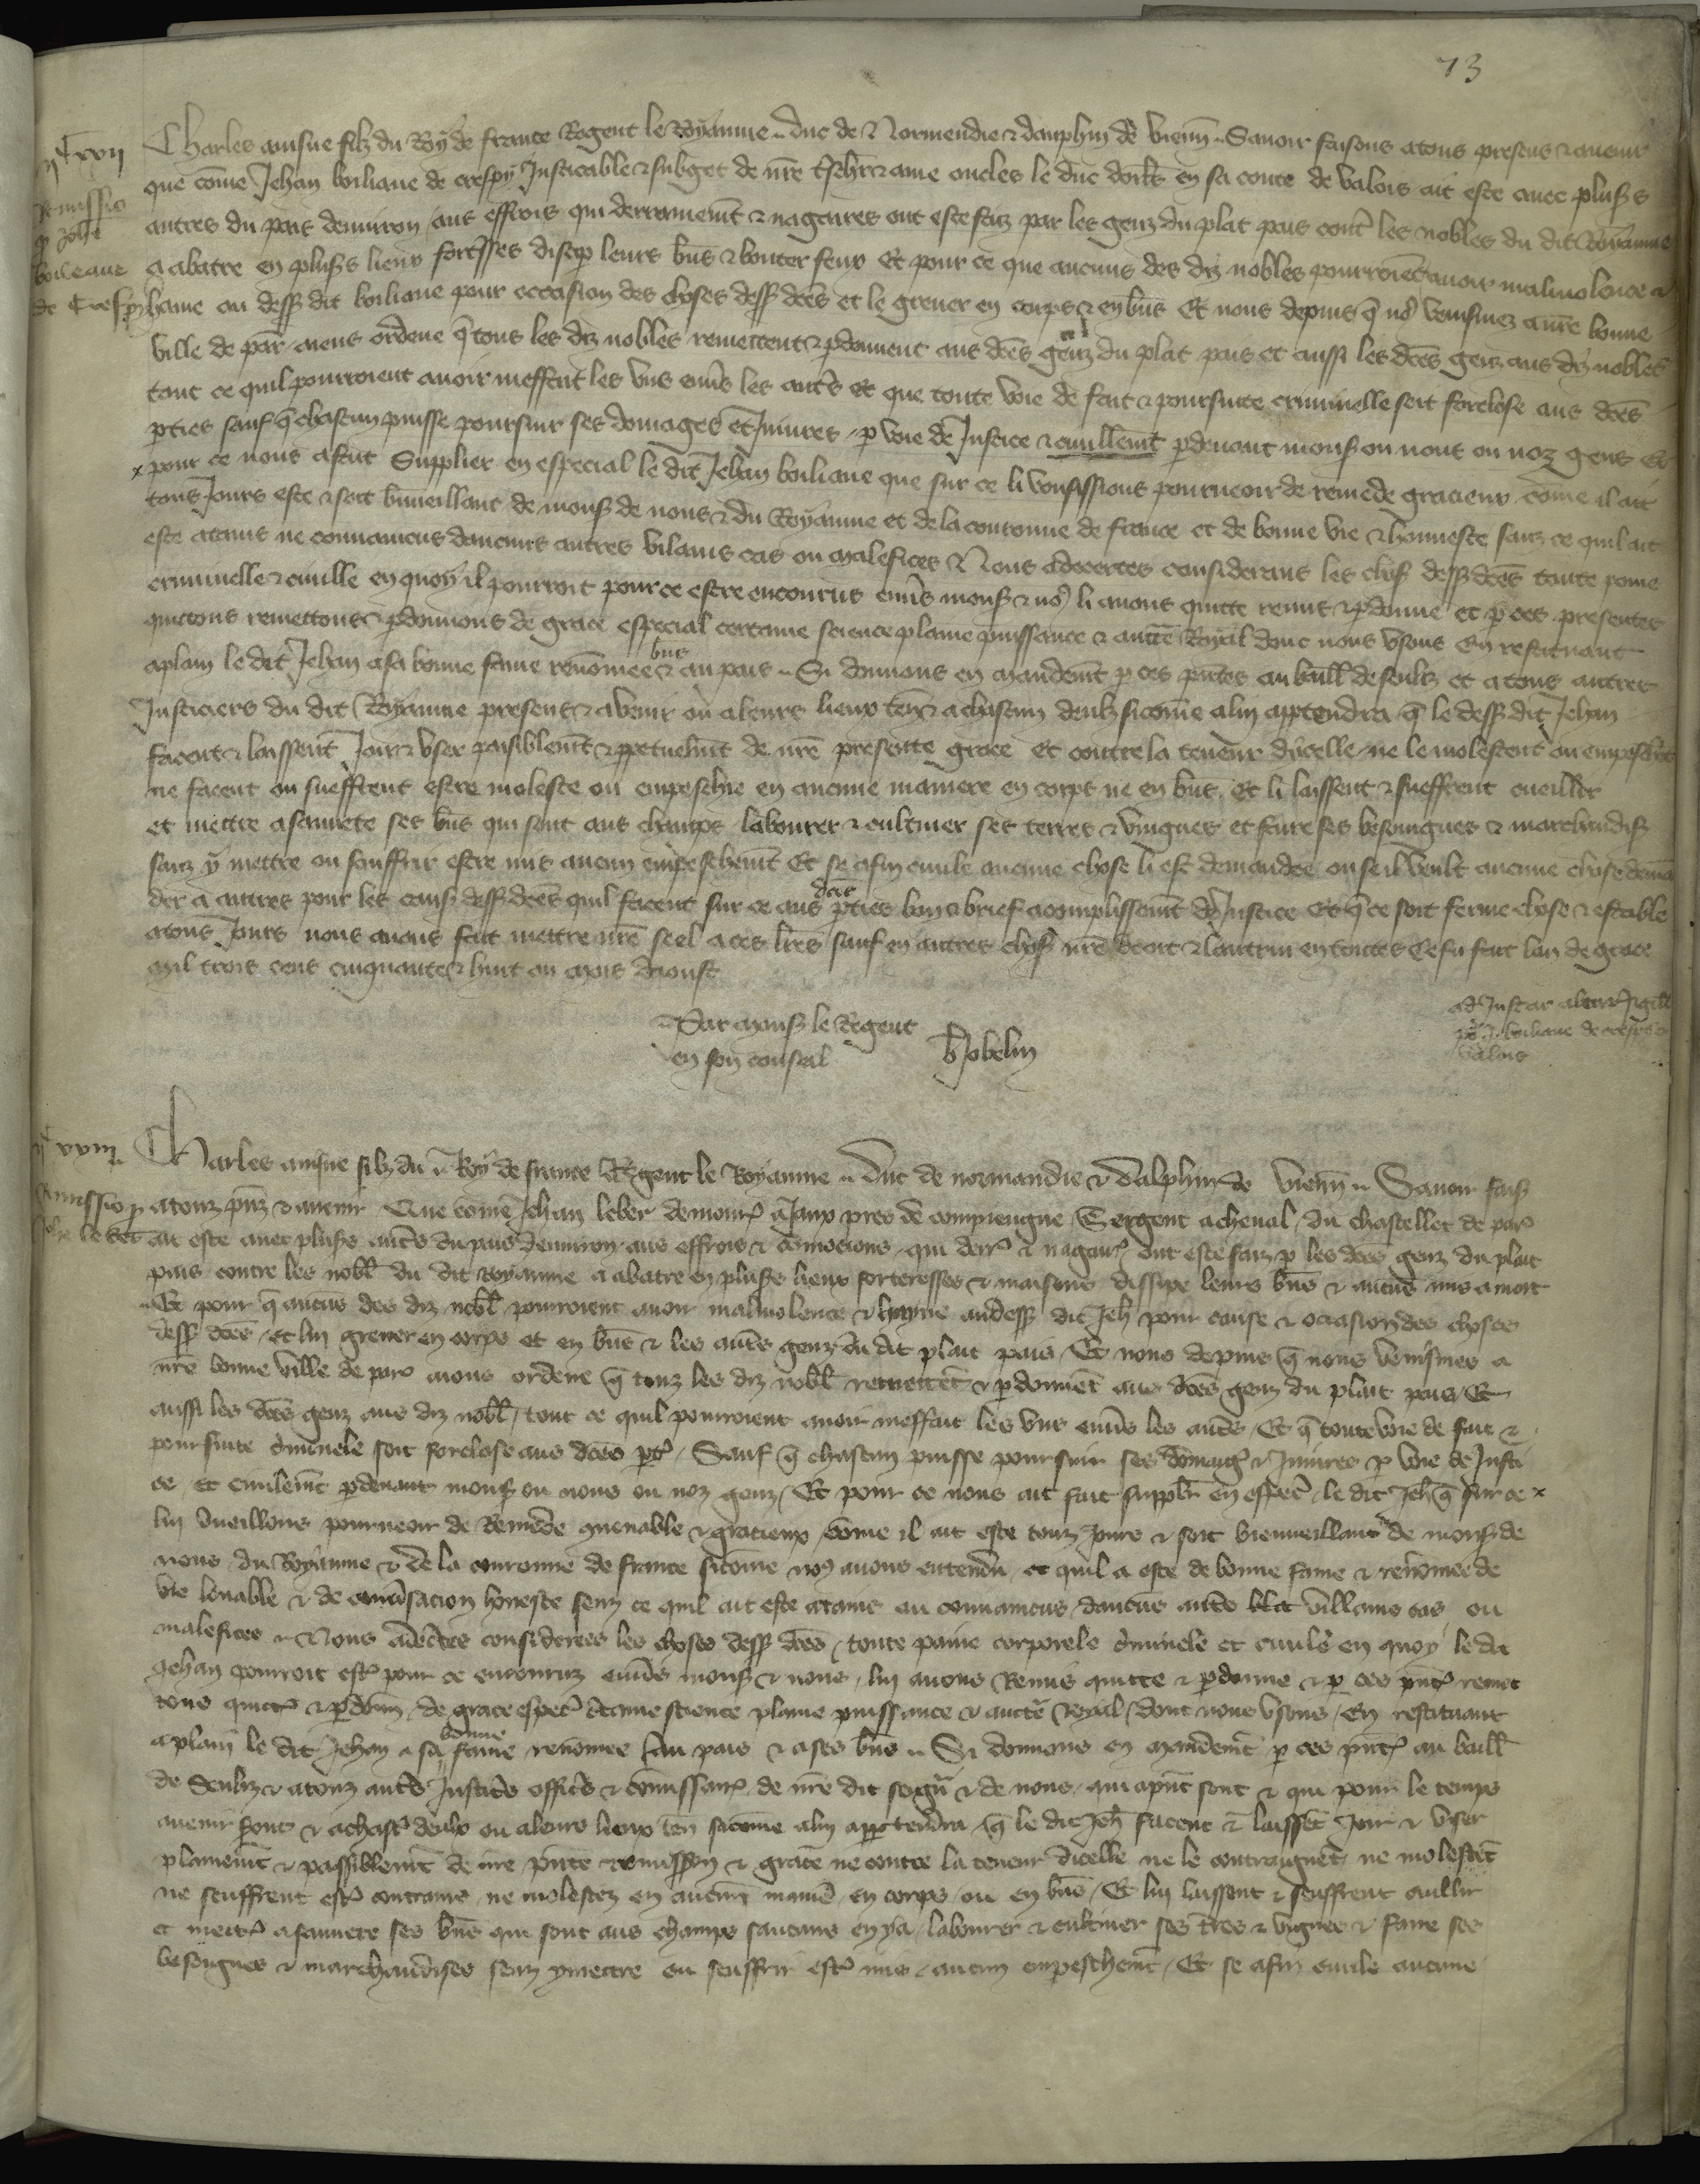 73
IIc XXVII
Remissio
p Johe
boileaue
de Crespy
Charles ainsne filz du Roy de france Regent le Royaume Duc de Normendie & dauphin de vienn Sauoir faisons a tous presens & auenir
que come Jehan boiliaue de crespy Justicable & subget de nre tschr & ame oncles le duc dorls en sa conte de valois ait este auec plusrs
autres du pais denuiron aus effrois qui derrainemt & nagaires ont este faiz par les genz du plat pais contr les nobles du dit Royaume
a abatre en plusrs lieux fortsses dissip leurs bns & bouter feux Et pour ce que aucuns des diz nobles pourroient auoir maliuolence &
hame au dess dit boiliaue pour occasion des choses dess dces et le greuer en corps & en bns Et nous depuis q no venismez a nre bonne
ville de par auens ordene q tous les diz nobles remettent & pdonnent aus dces genz du plat pais et aussi les dces genz aus diz nobles
tout ce quil pourroient auoir meffait les vns enuers les autrs et que toute voie de fait & poursuite criminelle soit forclose aus dces
pties sauf q chascun puisse poursuir ses domages et Iniures p voie de Justice & ciuillemt pdeuant mons ou nous ou noz gens Et
x pour ce nous a fait Supplier en especial le dit Jehan boiliaue que sur ce li voussissions pourueoir de remede gracieux come il ait
tous Jours este & soit bnueillant de mons de nous & du Royaume et de la couronne de france et de bonne vie & honneste sanz ce quil ait
este atains ne conuaincus daucuns autres vilains cas ou malefices Nous adecertes considerans les chos dess dces toute poine
criminelle & ciuille en quoy il pourroit pour ce estre encourus enuers mons & no li auons quitte remis & pdonne et p ces presentes
quittons remettons & pdonnons de grace especial certaine science plaine puissance & aucte Royal donc nous vsons En restituant
a plain le dit Jehan a sa bonne fame renomee & bns au pais Si donnons en mandemt p ces pntes au baill de senliz et a tous autres
Justiciers du dit Royaume presens & a venir ou a leurs lieux ten & a chascun deulz si come a lui apptendra q le dess dit Jehan
facent & laissent Joir & vser paisiblemt & ppetuelmt de nre presente grace et contre la teneur dicelle ne le molestent ou empeschent
ne facent ou suefftent estre moleste ou empeschie en aucune maniere en corps ne en bns Et li laissent & sueffrent cueillir
et mettre a sauuete ses bns qui sont aus champs labourer & cultiuer ses terres & vingnes et faire ses besoingnes & marchandis
sanz y mettre ou souffrir estre mis aucun empeschemt Et se a fin ciuile aucune chose li est demandee ou se il veult aucune chose deman
der a autres pour les caus dess dces quil facent sur ce aus dces pties bon & brief acomplissemt de Justice Et q ce soit ferme chose & estable
a tous Jours nous auons fait mettre nre seel a ces lres sauf en autres chos nre droit & lautrui en toutes Ce fu fait lan de grace
mil trois cens cinquante & huit ou mois daoust
Par mons le Regent
en son conseil Jobelin
ad Instar alterr
p J. boiliaue de crespy en
valois
IIc XXVIII
Remissio p
Johe le ber
Charles ainsne filz du Roy de france Regent le Royaume Duc de normandie & Dalphin de vienn Sauoir fais
a touz pnz & auenir Que come Jehan leber demour a Jaux pres de compiengne Sergent a cheual du chastellet de par
ait este auec plusrs autrs du pais denuiron aus effrois & comocions qui derr & nagair ont este faiz p les dces genz du plait
pais contre les nobl du dit royaume a abatre en plusrs lieux forteresses & maisons dissipe leurs bns & aucuns mis a mort
Et pour q aucus des diz nobl pourroient auoir maliuolence & hayne au dess dit Jeh pour cause & occasion des choses
dess dces et lui greuer en corps et en bns & les autrs genz du dit plait pais Et nous depuis q nous venismes a
nre bonne ville de par auons ordene q touz les diz nobl remettent & pdonnent aus dces genz du plait pais Et
aussi les dces genz aus diz nobl tout ce quil pourroient auoir meffait les vns enuers les autrs Et q toute voie de fait &
poursuite criminele soit forclose aus dces pts Sauf q chascun puisse poursuir ses domaig & Iniures p voie de Justi
ce et ciuilemt pdeuant mons ou nous ou noz genz Et pour ce nous ait fait supplir en espec le dit Jeh q sur ce x
lui vueillons pourueoir de Remede conuenable & gracieux come il ait este touz Jours & soit bienueillant de mons de
nous du Royaume & de la couronne de france si come nous auons entendu et quil a este de bonne fame & renomee de
vie louable & de conuersacion honeste senz ce quil ait este ataint ou conuaincus daucuns autrs villains cas ou
malefices Nous adecertes considerees les choses dess dces toute paine corporele criminele et ciuile en quoy le dit
Jehan pourroit estr pour ce encouruz enuers mons & nous lui auons Remis quitte & pdonne & p ces pntes remet
tons quitt & pdonn de grace espec certaine science plaine puissance & aucte Royal dont nous vsons En restituant
a plain le dit Jehan a sa bonne fame renomee au pais & a ses bns Si donnons en mandemt p ces pntes au baill
de Senliz & a touz autrs Justic officiers & comissair de nre dit seignr & de nous qui a pnt sont & qui pour le temps
auenir seront & a chascun deulx ou a leurs lieux ten si come a lui appartendra q le dit Jeh facent & laissent Joir & vser
plainemt & paissiblemt de nre pnte remission & grace ne contre la teneur dicelle ne le contraignent ne molestent
ne seuffrent estr contrains ne molestez en aucune maniere en corps ou en bns Et lui laissent & seuffrent cuillir
et mectr a sauuete ses bns qui sont aus champs labourer & cultiuer ses terres & vignes & faire ses
besoignes & marchandises senz y mectre ou seuffrir estr mis aucun empeschemt Et se a fin ciuile aucune